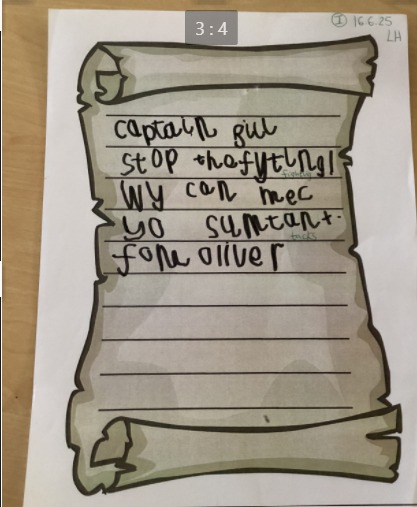 3:4
① 16.6.25
LH
captain giul
stop thofyting!
fighting
wy can mec
yo sumtant.
tacks
fom oliver